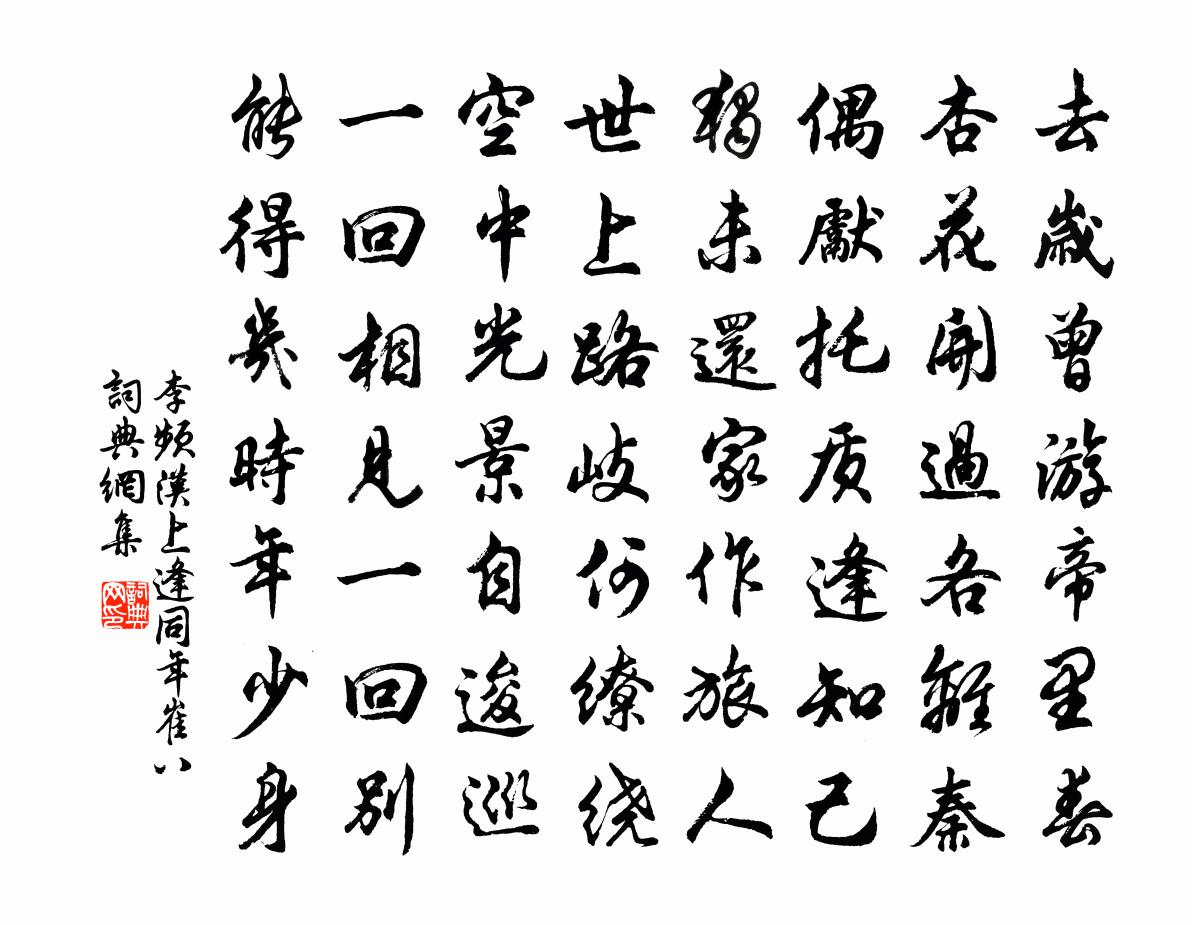 去歲曾游帝里春
杏花開過各離秦
偶獻托质逢知己
獨未還家作旅人
世上路岐何繚绕
空中光景自逡巡
一回相見一回別
能得幾時年少身
李頻漢上逢同年崔八
詞典網集
詞典网印